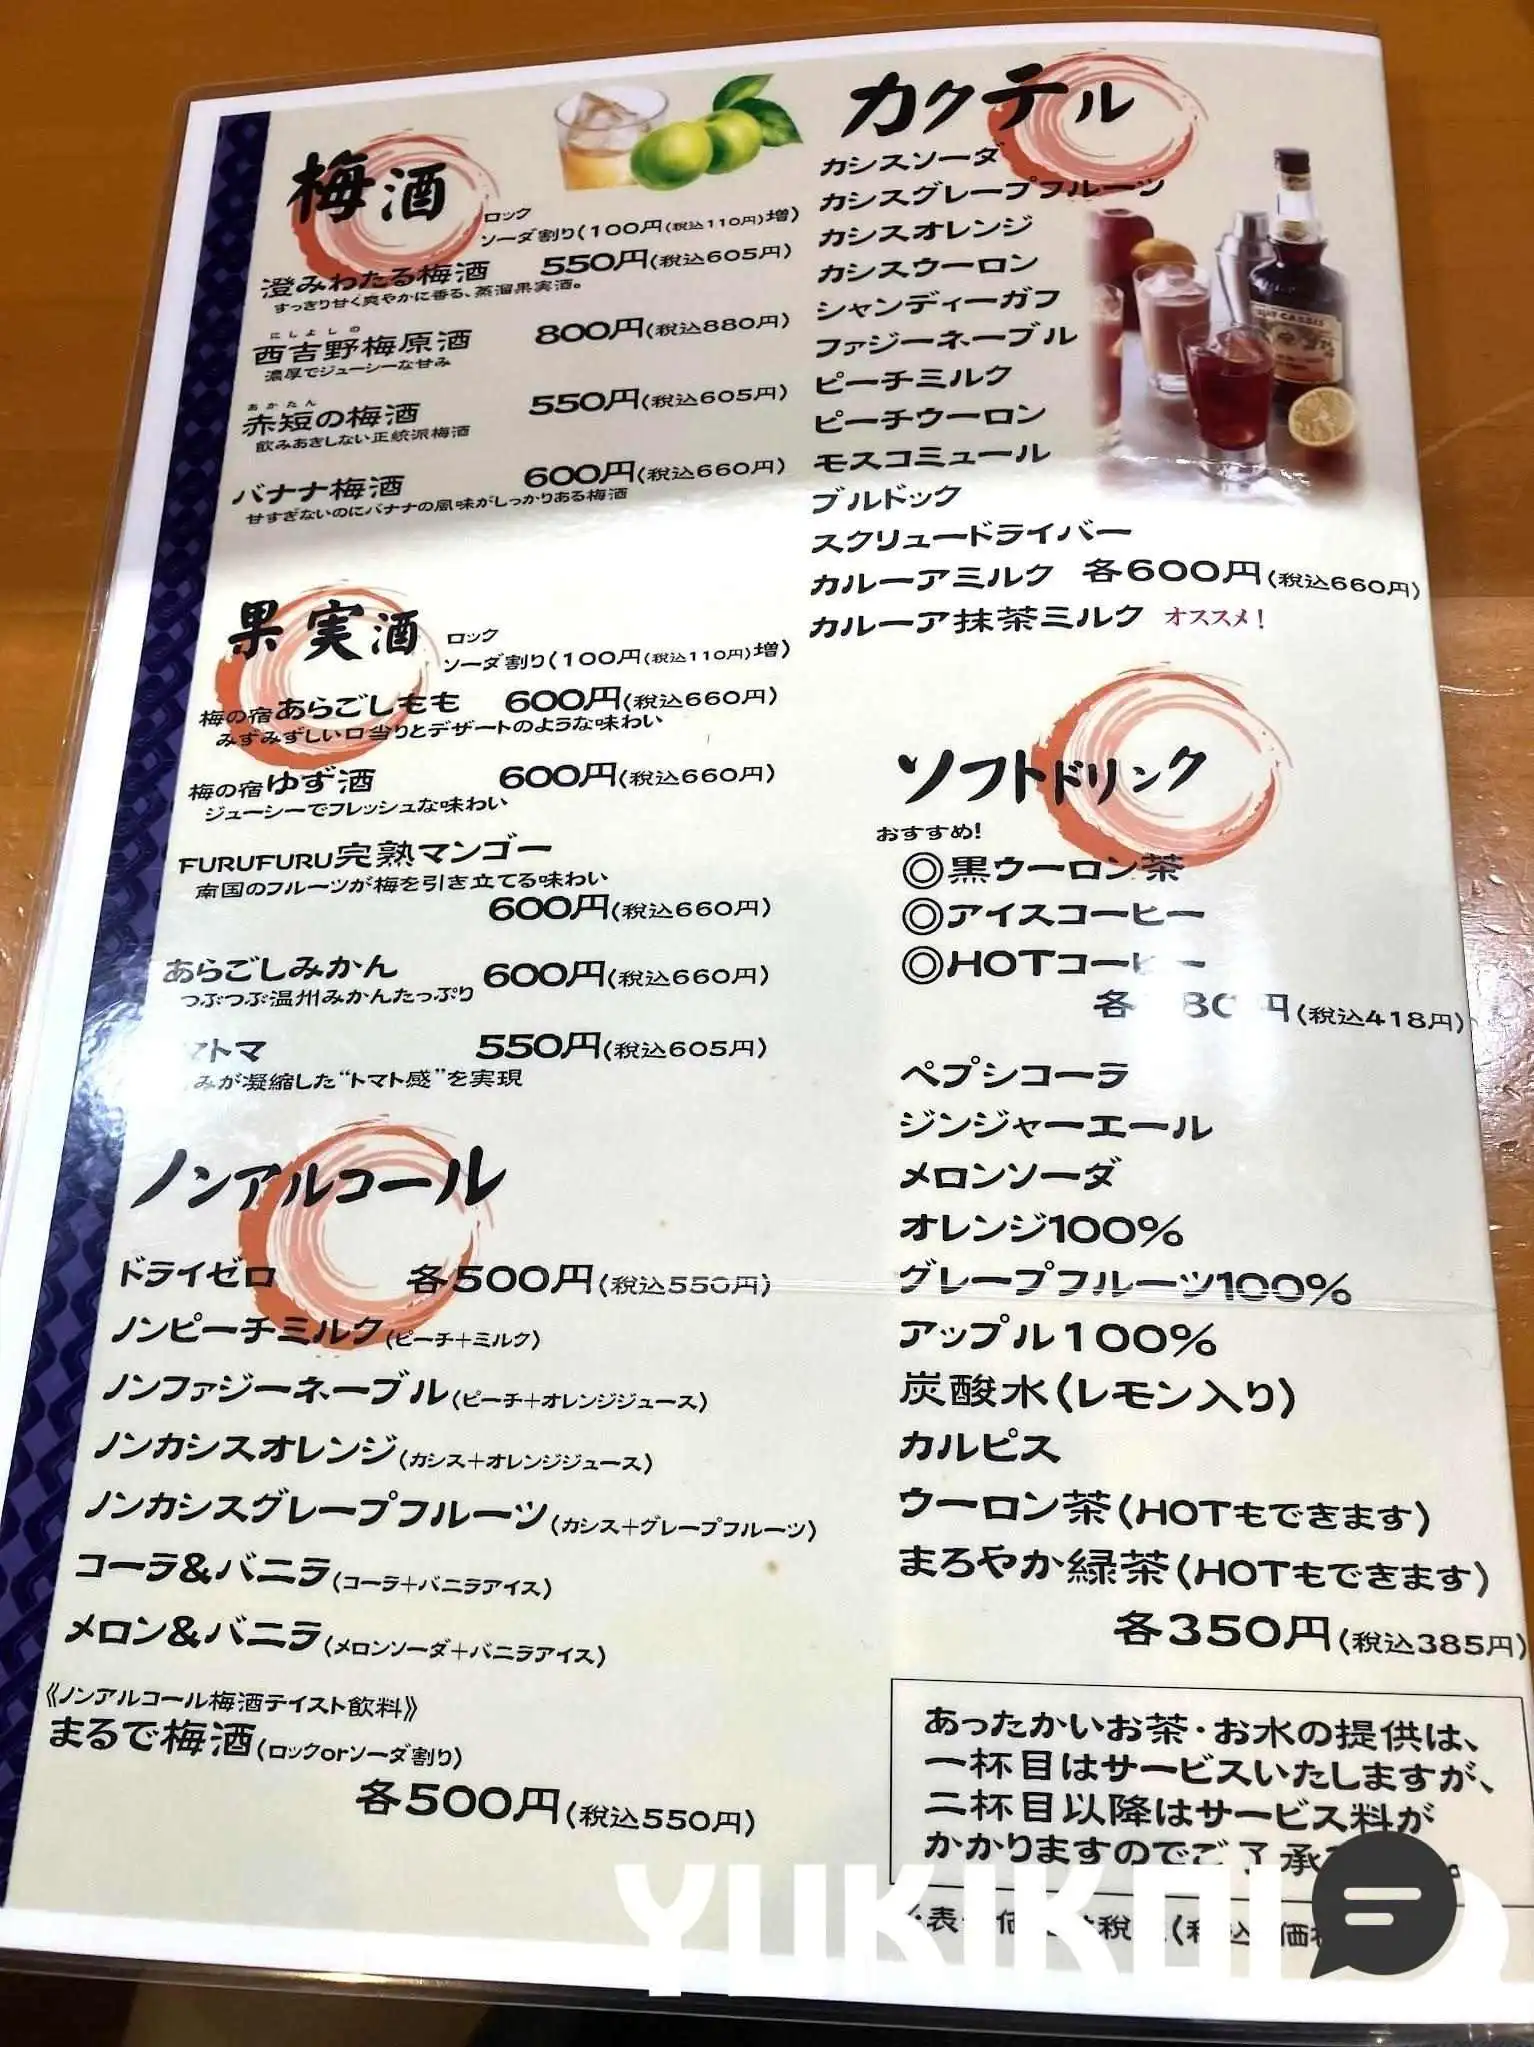 梅酒
ロック
ソーダ割り(100円(税込110円)増)
澄みわたる梅酒 550円(税込605円)
すっきり甘く爽やかに香る、蒸溜果実酒。
にしよしの
西吉野梅原酒 800円(税込880円)
濃厚でジューシーな甘み
あかたん
赤短の梅酒 550円(税込605円)
飲みあきしない正統派梅酒
バナナ梅酒 600円(税込660円)
甘すぎないのにバナナの風味がしっかりある梅酒
果実酒
ロック
ソーダ割り(100円(税込110円)増)
梅の宿あらごしもも 600円(税込660円)
みずみずしい口当りとデザートのような味わい
梅の宿ゆず酒 600円(税込660円)
ジューシーでフレッシュな味わい
FURUFURU完熟マンゴー
南国のフルーツが梅を引き立てる味わい
600円(税込660円)
あらごしみかん 600円(税込660円)
つぶつぶ温州みかんたっぷり
マトマ 550円(税込605円)
みが凝縮した“トマト感”を実現
ノンアルコール
ドライゼロ 各500円(税込550円)
ノンピーチミルク(ピーチ+ミルク)
ノンファジーネーブル(ピーチ+オレンジジュース)
ノンカシスオレンジ(カシス+オレンジジュース)
ノンカシスグレープフルーツ(カシス+グレープフルーツ)
コーラ&バニラ(コーラ+バニラアイス)
メロン&バニラ(メロンソーダ+バニラアイス)
《ノンアルコール梅酒テイスト飲料》
まるで梅酒(ロックorソーダ割り)
各500円(税込550円)
カクテル
カシスソーダ
カシスグレープフルーツ
カシスオレンジ
カシスウーロン
シャンディーガフ
ファジーネーブル
ピーチミルク
ピーチウーロン
モスコミュール
ブルドック
スクリュードライバー
カルーアミルク 各600円(税込660円)
カルーア抹茶ミルク オススメ!
ソフトドリンク
おすすめ!
◎黒ウーロン茶
◎アイスコーヒー
◎HOTコーヒー
各 80円(税込418円)
ペプシコーラ
ジンジャーエール
メロンソーダ
オレンジ100%
グレープフルーツ100%
アップル100%
炭酸水(レモン入り)
カルピス
ウーロン茶(HOTもできます)
まろやか緑茶(HOTもできます)
各350円(税込385円)
あったかいお茶・お水の提供は、
一杯目はサービスいたしますが、
二杯目以降はサービス料が
かかりますのでご了承
YUKIKO